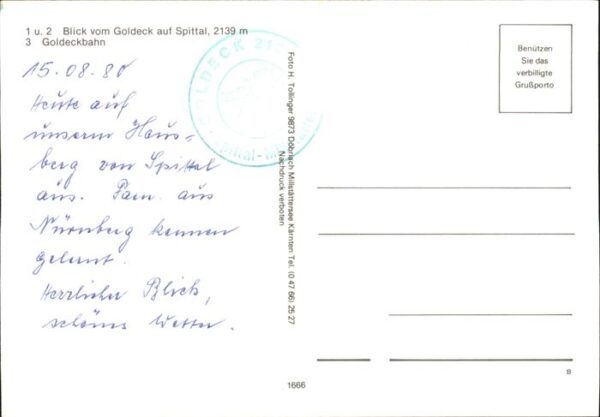 1 u. 2 Blick vom Goldeck auf Spittal, 2139 m
3 Goldeckbahn
15.08.80
Heute auf
unserm Haus-
berg von Spittal
aus. Fam. aus
Nürnberg kennen
gelernt.
Herrlicher Blick,
schönes Wetter.
GOLDECK 21
Spittal-Mill
Foto H. Tollinger 9873 Döbriach Millstättersee Kärnten Tel. (0 47 66) 26 27
Nachdruck verboten
Benützen
Sie das
verbilligte
Grußporto
1666
B